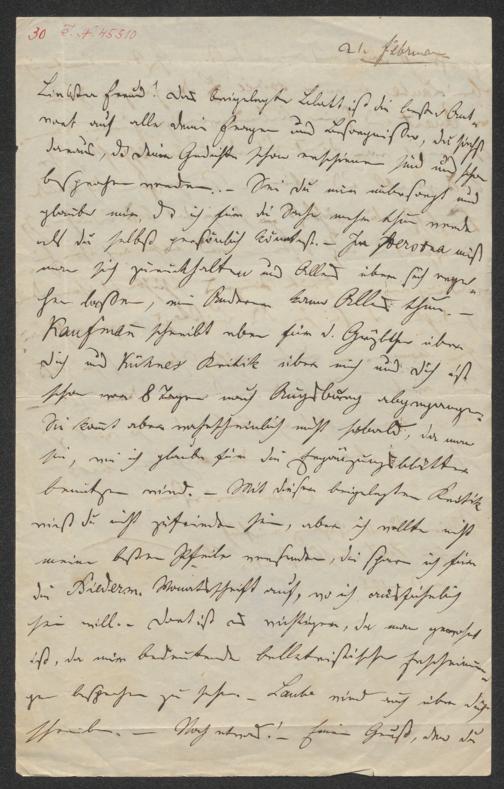 30 I. N. 45510
21. Februar
Liebster Freund! Das beigelegte Blatt ist die beste Ant-
wort auf alle deine Fragen und Besorgnisse, du siehst
daraus, daß deine Gedichte schon erschienen sind und schon
besprochen werden. – Sei du nun überzeugt und
glaube mir, daß ich für die Sache mehr thun werde
als du selbst persönlich könntest. – In persona muß
man sich zurückhalten und Alles über sich erge-
hen lassen, ein Anderer kann Alles thun. –
Kaufmann schreibt eben für d. Grenzboten über
dich und Kühnes Kritik über mich und dich ist
schon vor 8 Tagen nach Augsburg abgegangen.
Sie kommt aber wahrscheinlich nicht sobald, da man
sie, wie ich glaube für die Ergänzungsblätter
benützen wird. – Mit dieser beigelegten Kritik
wirst du nicht zufrieden sein, aber ich wollte nicht
meine besten Pfeile versenden, die spare ich für
die Biederm. Monatsschrift auf, wo ich ausführlich
sein will. – Dort ist es wichtiger, da man gewohnt
ist, da nur bedeutende belletristische Erscheinun-
gen besprochen zu sehen. – Laube wird auch über dich
schreiben. – Noch etwas! – Einen Gruß, den du